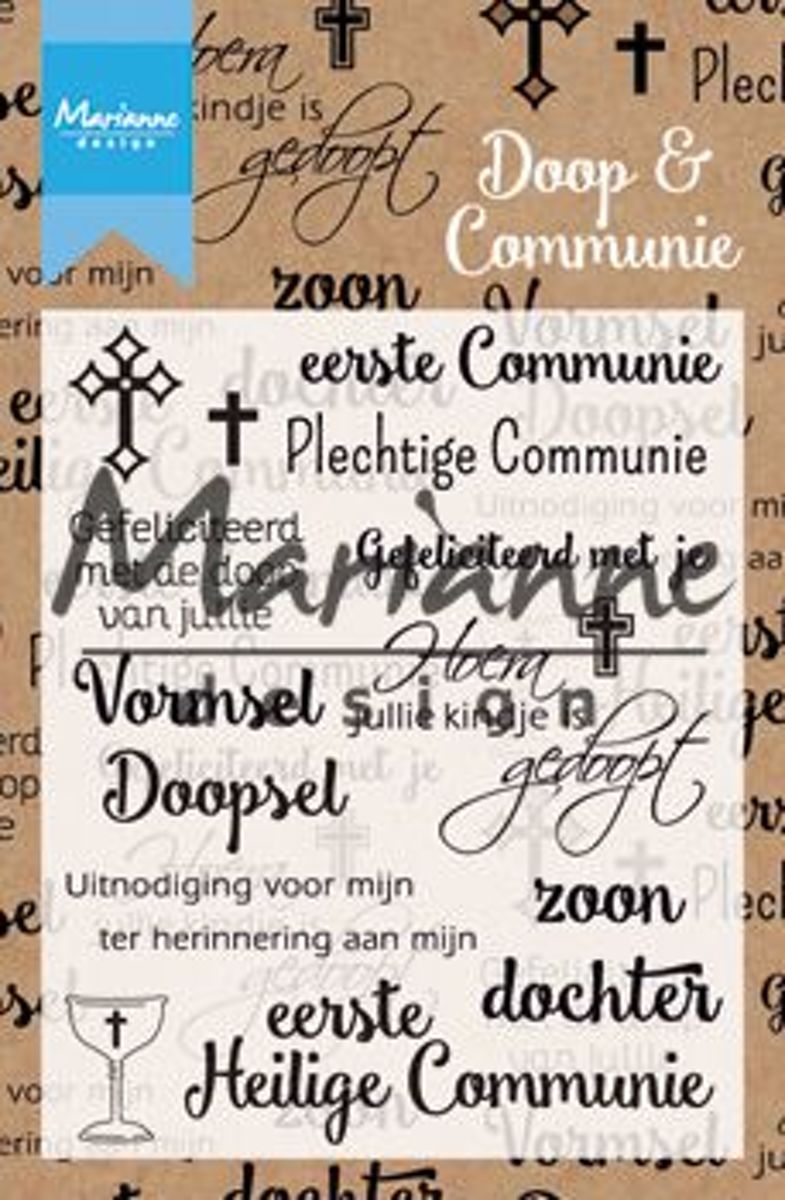 Marianne
design
Hoera
kindje is
gedoopt
Plech
Doop &
Communie
voor mijn
zoon
eerste Communie
Plechtige Communie
Gefeliciteerd
met de doop
van jullie
Gefeliciteerd met je
Marianne
design
Hoera
jullie kindje is
gedoopt
Vormsel
Doopsel
Uitnodiging voor mijn
ter herinnering aan mijn
zoon
dochter
eerste
Heilige Communie
dochter